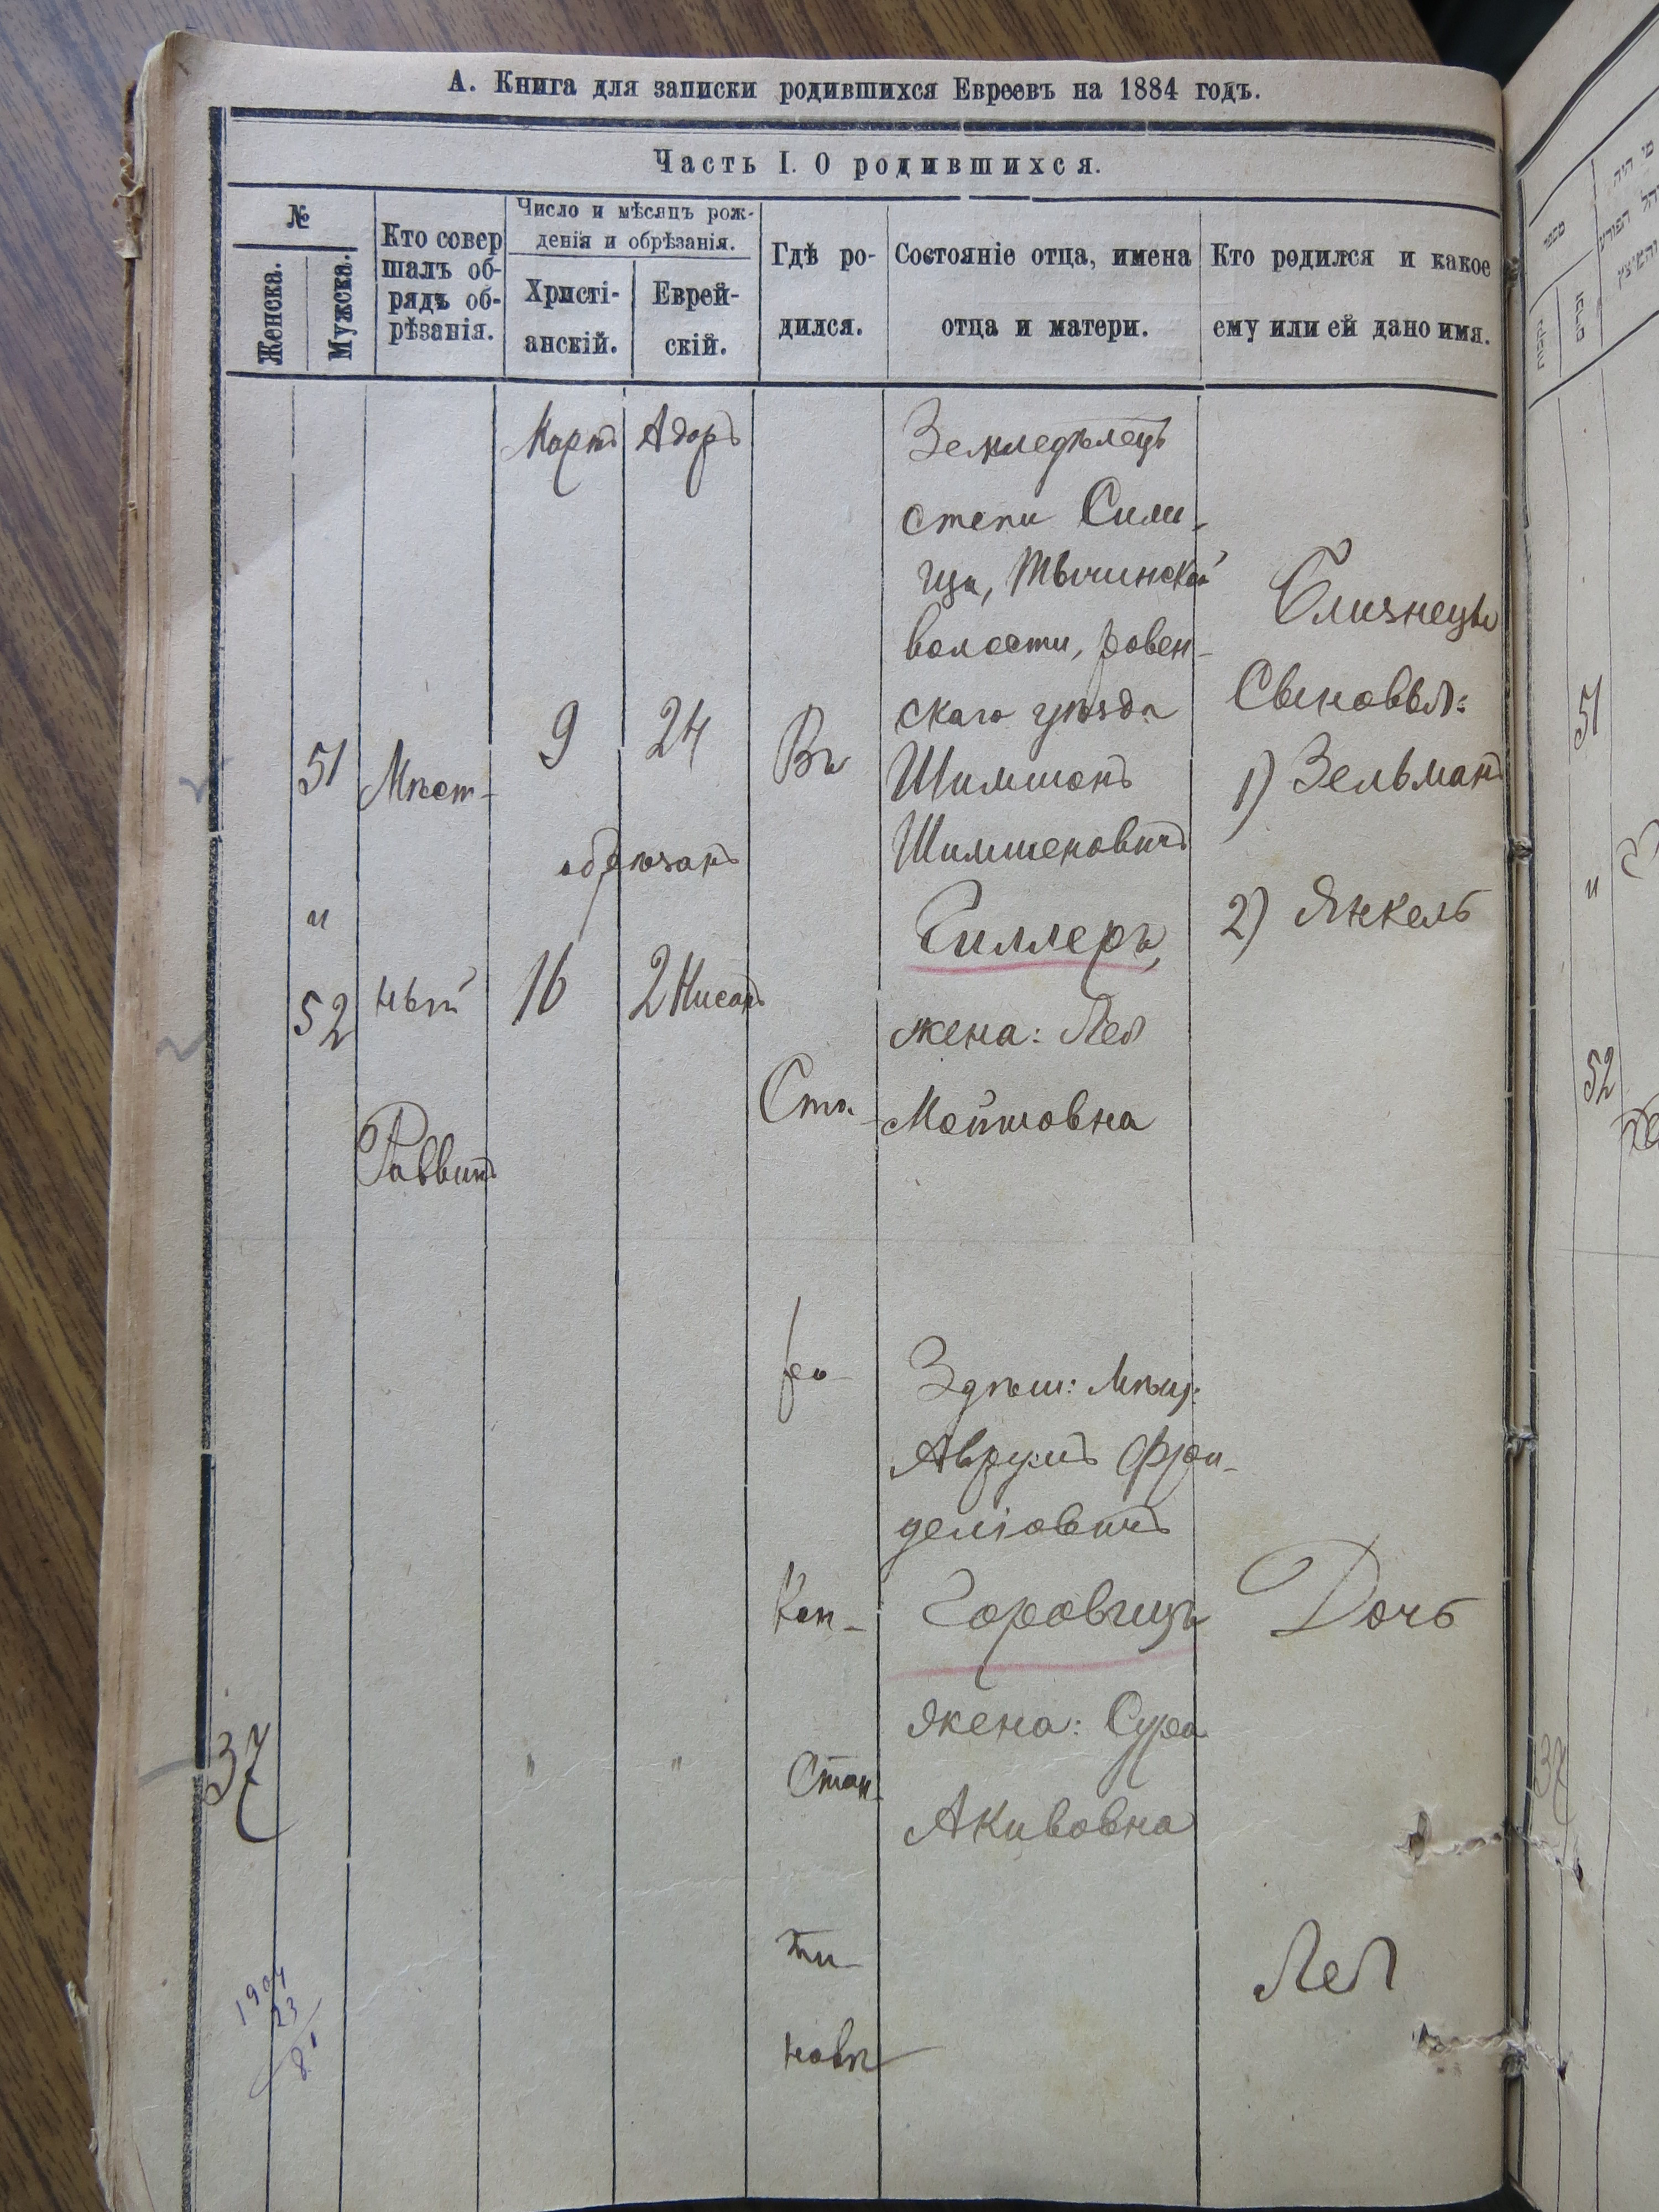 А. Книга для записки родившихся Евреевъ на 1884 годъ.
Часть I. О родившихся.
№
Женска.
Мужска.
Кто совер
шалъ об-
рядъ об-
рѣзанія.
Число и мѣсяцъ рож-
денія и обрѣзанія.
Христі-
анскій.
Еврей-
скій.
Гдѣ ро-
дился.
Состояніе отца, имена
отца и матери.
Кто родился и какое
ему или ей дано имя.
Мартъ
Адаръ
51
и
52
Мѣст-
ный
Раввинъ
9
24
обрѣзанъ
16
2 Нисанъ
Въ
Ста-
ро-
Кон-
стан-
ти-
новѣ
Земледѣлецъ
степи Сили-
ща, Тычинской
волости, Ровен-
скаго уѣзда
Шимшонъ
Шимшоновичъ
Гиллеръ,
жена: Лея
Мошковна
Близнецы
Сыновья:
1) Зельманъ
2) Янкель
37
"
"
Здѣш: Мѣщ:
Аврумъ Фрои-
деліовичъ
Горовицъ
жена: Сура
Акивовна
Дочь
Лея
1904
23
8
51
и
52
37